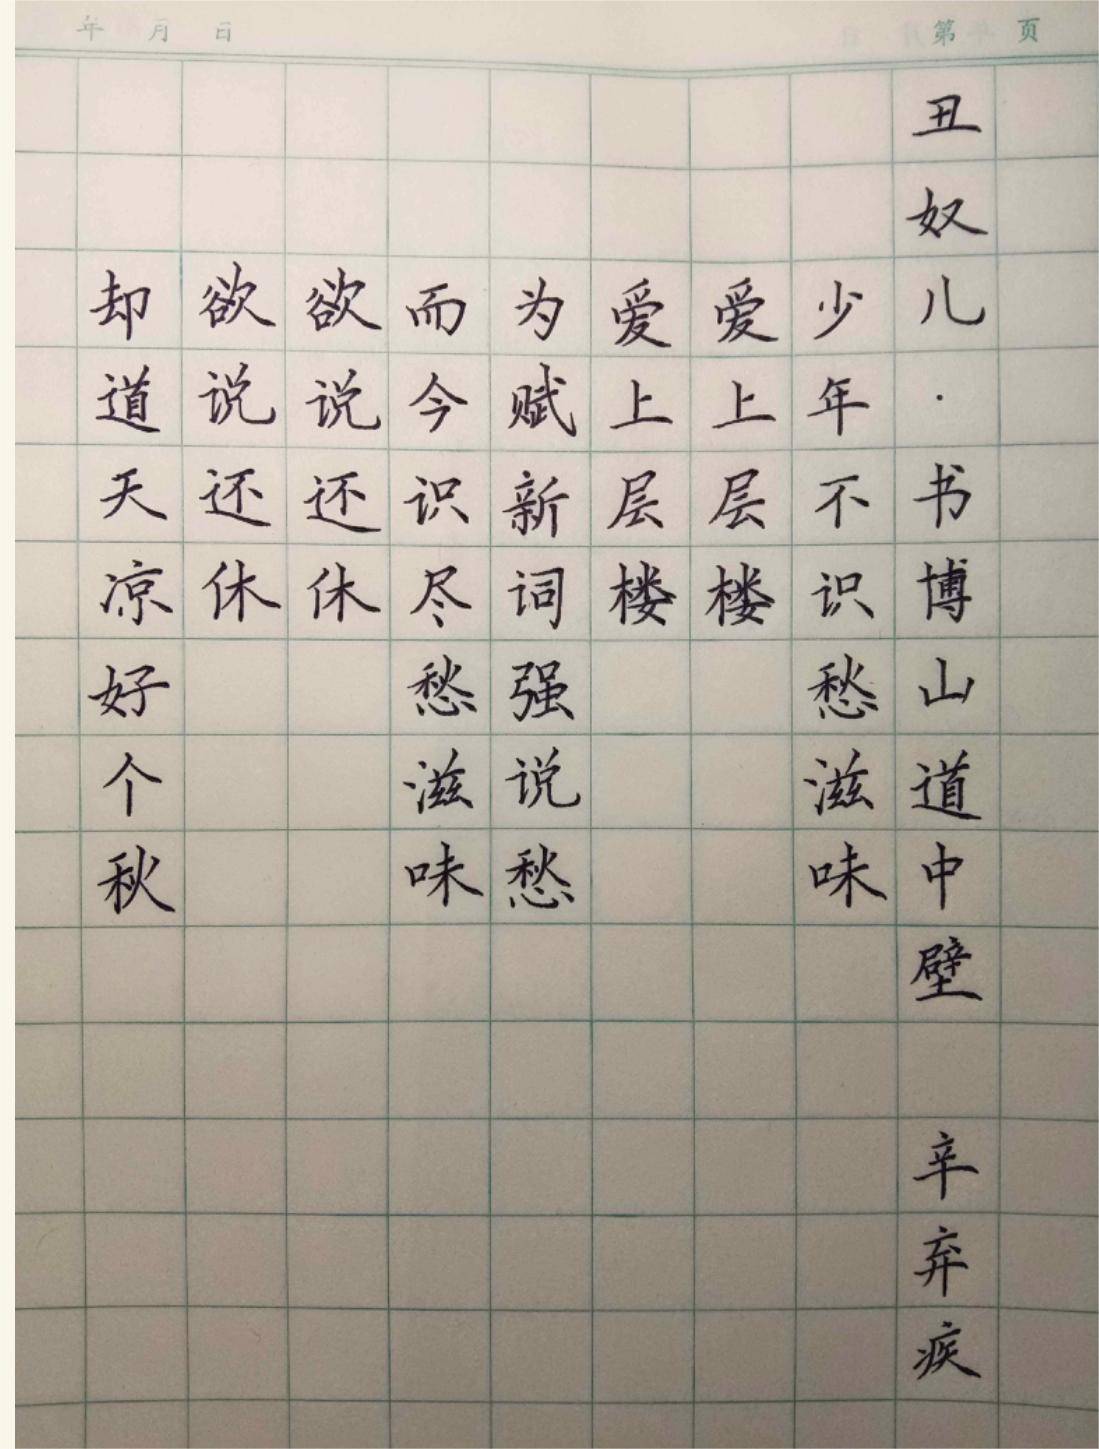 年 月 日 第 页
丑奴儿·书博山道中壁 辛弃疾
少年不识愁滋味
爱上层楼
爱上层楼
为赋新词强说愁
而今识尽愁滋味
欲说还休
欲说还休
却道天凉好个秋